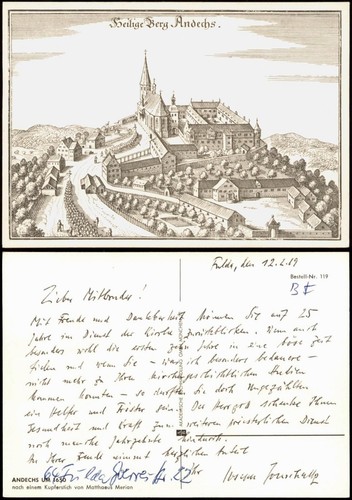 Heilige Berg Andechs.
Fulda, den 12.2.89
Bestell-Nr. 119
Lieber Mitbruder!
Mit Freude und Dankbarkeit können Sie auf 25
Jahre im Dienst der Kirche zurückblicken. Wenn auch
besonders wohl die ersten zehn Jahre in eine böse Zeit
fielen und wenn Sie – was ich besonders bedauere –
nicht mehr zu Ihren kirchengeschichtlichen Studien
kommen konnten – so durften Sie doch Ungezählten
ein Helfer und Tröster sein. Der Herrgott schenke Ihnen
Gesundheit und Kraft zu weiterem priesterlichen Dienst
noch manche Jahrzehnte hindurch.
An Ihrer Freude nimmt herzlichen Anteil
Ihr
ANDECHS UM 1650
nach einem Kupferstich von Matthaeus Merian